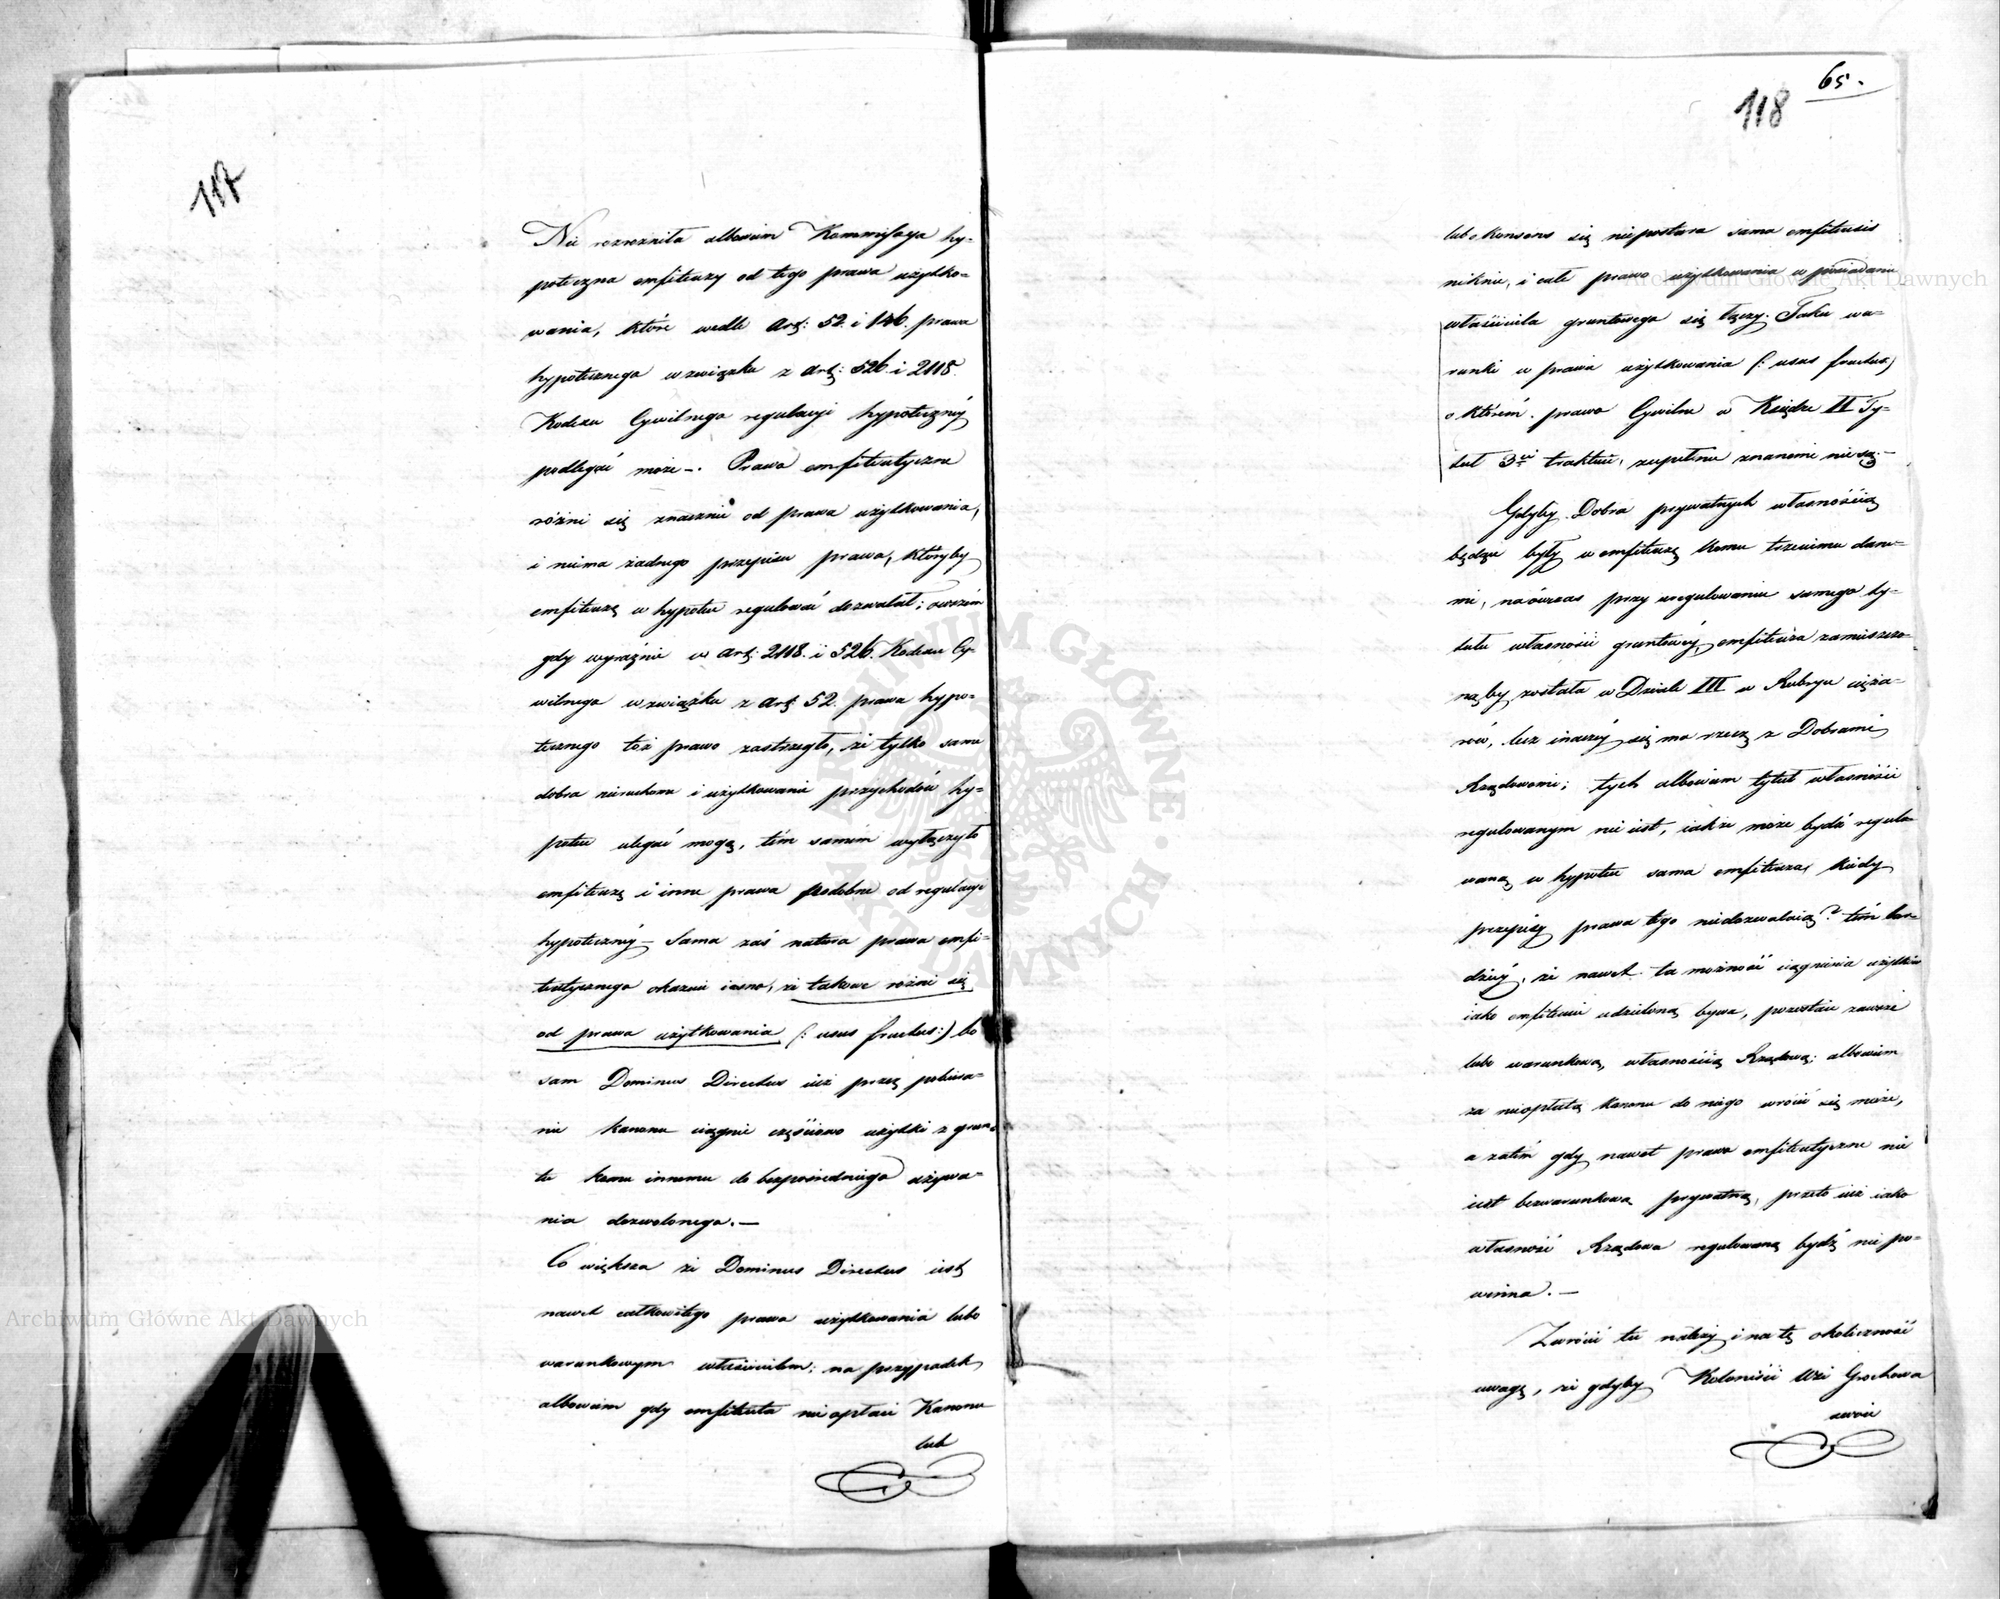 117
Nie rozrożniła albowiem Kommissya hy-
poteczna emfiteuzy od tego prawa użytko-
wania, które wedle art: 52. i 146. prawa
hypotecznego w związku z art: 526 i 2118.
Kodexu Cywilnego regulacyi hypoteczney
podlegać może –. Prawo emfiteutyczne
różni się znacznie od prawa użytkowania,
i niema żadnego przepisu prawa, któryby
emfiteuzę w hypotece regulować dozwalał; owszem
gdy wyraźnie w art: 2118. i 526. Kodexu Cy-
wilnego w związku z art: 52. prawa hypo-
tecznego toż prawo zastrzegło, że tylko same
dobra nieruchome i użytkowanie przychodów hy-
potece ulegać mogą, tém samém wyłączyło
emfiteuzę i inne prawa podobne od regulacyi
hypoteczney – Sama zaś natura prawa emfi-
teutycznego okazuie iasno, że takowe rożni się
od prawa użytkowania (: usus fructus:) bo
sam Dominus Directus iuż przez pobiera-
nie kanonu ciągnie częściowo użytki z grun-
tu komu innemu do bezpośredniego używa-
nia dozwolonego. —
Co większa że Dominus Directus iest
nawet całkowitego prawa użytkowania lubo
warunkowym właścicielem; na przypadek
albowiem gdy emfiteuta nieopłaci Kanonu
lub
65.
118
lub o Konsens się niepostara sama emfiteusis
niknie, i całe prawo użytkowania w posiadanie
właściciela gruntowego się łączy. Takie wa-
runki w prawie użytkowania (: usus fructus)
o którém prawo Cywilne w Księdze II Ty-
tuł 3ci traktuie, zupełnie znanemi nie są. –
Gdyby Dobra prywatnych własnością
będące były w emfiteuzę komu trzeciemu dane-
mi, naówczas przy uregulowaniu samego ty-
tułu własności gruntowéy, emfiteuza zamieszczo-
ną by została w Dziale III w Rubryce cięża-
rów, lecz inaczéy się ma rzecz z Dobrami
Rządowemi; tych albowiem tytuł własności
regulowanym nie iest, iakże może bydź regulo-
waną w hypotece sama emfiteuza, kiedy
przepisy prawa tego niedozwalaią? tém bar-
dziéy, że nawet ta możność ciągnienia użytków
iako emfiteucie udzieloną bywa, pozostaie zawsze
lubo warunkową, własnością Rządową; albowiem
za nieopłatą kanonu do niego wrócić się może,
a zatém gdy nawet prawo emfiteutyczne nie
iest bezwarunkowo prywatną, przeto iuż iako
własność Rządowa regulowaną bydź nie po-
winna. —
Zwrócić tu należy i na tę okoliczność
uwagę, że gdyby Koloniści Wsi Grochowa
swoie